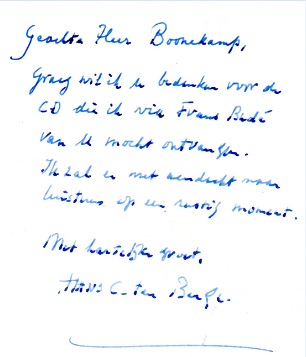 Geachte Heer Boonekamp,
Graag wil ik u bedanken voor de
CD die ik via Frans Budé
van U mocht ontvangen.
Ik zal er met aandacht naar
luisteren op een rustig moment.
Met hartelijke groet,
Hans C. ten Berge.